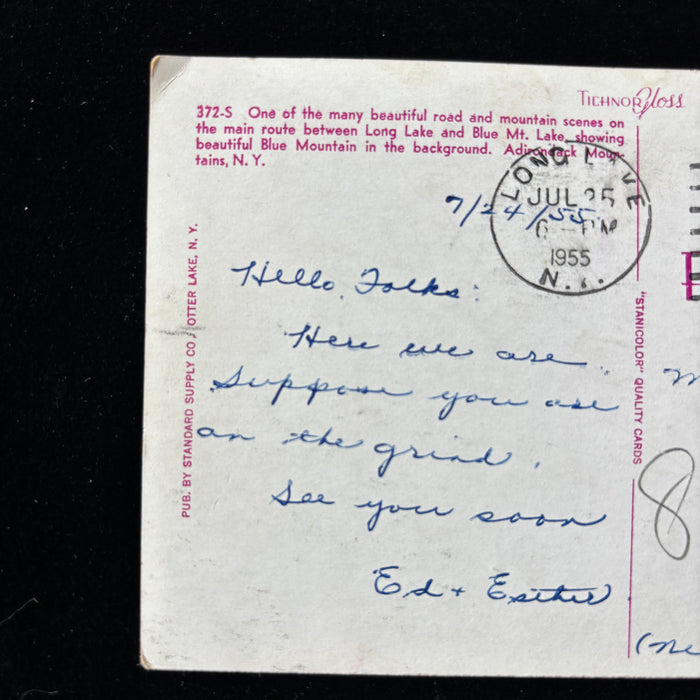 TICHNOR Gloss
372-S One of the many beautiful road and mountain scenes on
the main route between Long Lake and Blue Mt. Lake, showing
beautiful Blue Mountain in the background. Adirondack Moun-
tains, N. Y.
LONG LAKE
JUL 25
6 - PM
1955
N.Y.
7/24/55.
Hello Folks:
Here we are.
Suppose you are
on the grind.
See you soon
Ed + Esther
PUB. BY STANDARD SUPPLY CO, OTTER LAKE, N. Y.
"STANICOLOR" QUALITY CARDS
8